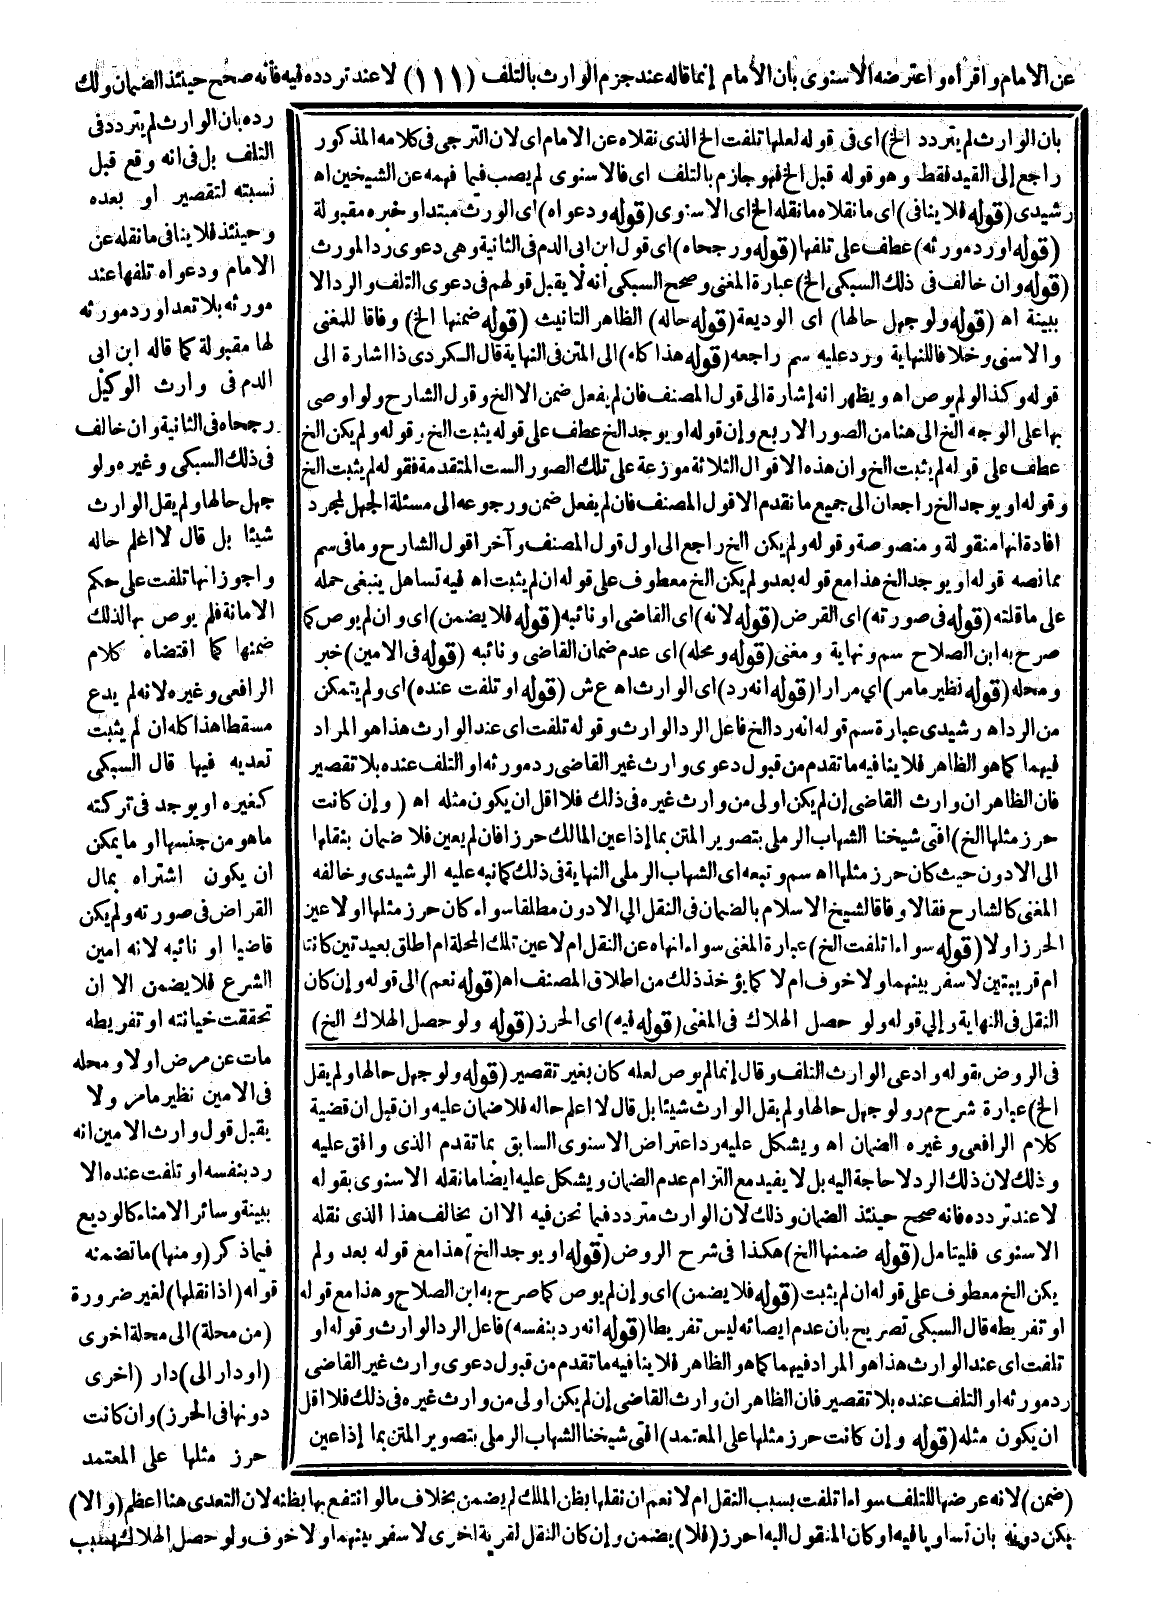 عن الامام واقرأه واعترضه الاسنوى بان الأمام إنما قاله عند جزم الوارث بالتلف (١١١) لا عند تردده فيه فأنه صحح حينئذ الضمان ولك
رده بان الوارث لم يتردد فى
التلف بل فى انه وقع قبل
نسبته لتقصير او بعده
وحينئذ فلا ينافى ما نقله عن
الامام ودعواه تلفها عند
مورثه بلا تعد او رد مورثه
لها مقبولة كما قاله ابن ابى
الدم فى وارث الوكيل
رجحاه فى الثانية وان خالف
فى ذلك السبكى وغيره ولو
جهل حالها ولم يقل الوارث
شيئا بل قال لا اعلم حاله
واجوز انها تلفت على حكم
الامانة فلم يوص بها لذلك
ضمنها كما اقتضاه كلام
الرافعى وغيره لانه لم يدع
مسقطا هذا كله ان لم يثبت
تعديه فيها قال السبكى
كغيره او يوجد فى تركته
ما هو من جنسها او ما يمكن
ان يكون اشتراه بمال
القراض فى صورته ولم يكن
قاضيا او نائبه لانه امين
الشرع فلا يضمن الا ان
تحققت خيانته او تفريطه
مات عن مرض او لا ومحله
فى الامين نظير ما مر ولا
يقبل قول وارث الامين انه
رد بنفسه او تلفت عنده الا
ببينة وسائر الامناء كالوديع
فيما ذكر (ومنها) ما تضمنه
قوله (اذا نقلها) لغير ضرورة
(من محلة) الى محلة اخرى
(او دار الى) دار (اخرى
دونها فى الحرز) وان كانت
حرز مثلها على المعتمد
(ضمن) لانه عرضها للتلف سواء اتلفت بسبب النقل ام لا نعم ان نقلها بظن الملك لم يضمن بخلاف ما لو انتفع بها بظنه لان التعدى هنا اعظم (والا)
يكن دونه بان تساويا فيه او كان المنقول اليه احرز (فلا) يضمن وإن كان النقل لقرية اخرى لا سفر بينهما ولا خوف ولو حصل الهلاك بسبب
بان الوارث لم يتردد الخ) اى فى قوله لعلها تلفت الخ الذى نقلاه عن الامام اى لان الترجى فى كلامه المذكور
راجع إلى القيد فقط وهو قوله قبل الخ فهو جازم بالتلف اى فالاسنوى لم يصب فيما فهمه عن الشيخين اه
رشيدى (قوله فلا ينافى) اى ما نقلاه ما نقله الخ اى الاسنوى (قوله ودعواه) اى الورث مبتدا وخبره مقبولة
(قوله اورد مورثه) عطف على تلفها (قوله ورجحاه) اى قول ابن ابى الدم فى الثانية وهى دعوى رد المورث
(قوله وان خالف فى ذلك السبكى الخ) عبارة المغنى وصحح السبكى أنه لا يقبل قولهم فى دعوى التلف والرد الا
ببينة اه (قوله ولو جهل حالها) اى الوديعة (قوله حاله) الظاهر التانيث (قوله ضمنها الخ) وفاقا للمغنى
والاسنى وخلافا للنهاية ورد عليه سم راجعه (قوله هذا كله) الى المتن فى النهاية قال الكردى ذا اشارة الى
قوله وكذا لو لم يوص اه ويظهر انه إشارة الى قول المصنف فان لم يفعل ضمن الا الخ وقول الشارح ولو اوصى
بها على الوجه الخ الى هنا من الصور الاربع وإن قوله او يوجد الخ عطف على قوله يثبت الخ وقوله ولم يكن الخ
عطف على قوله لم يثبت الخ وان هذه الاقوال الثلاثة موزعة على تلك الصور الست المتقدمة فقوله لم يثبت الخ
وقوله او يوجد الخ راجعان الى جميع ما تقدم الا قول المصنف فان لم يفعل ضمن ورجوعه الى مسئلة الجهل لمجرد
افادة انها منقولة ومنصوصة وقوله ولم يكن الخ راجع الى اول قول المصنف وآخر اقول الشارح وما فى سم
بما نصه قوله او يوجد الخ هذا مع قوله بعد ولم يكن الخ معطوف على قوله ان لم يثبت اه فيه تساهل ينبغى حمله
على ما قلته (قوله فى صورته) اى القرض (قوله لانه) اى القاضى او نائبه (قوله فلا يضمن) اى وان لم يوص كما
صرح به ابن الصلاح سم ونهاية ومغنى (قوله ومحله) اى عدم ضمان القاضى ونائبه (قوله فى الامين) خبر
ومحله (قوله نظير ما مر) اي مرارا (قوله انه رد) اى الوارث اه ع ش (قوله او تلفت عنده) اى ولم يتمكن
من الرد اه رشيدى عبارة سم قوله انه رد الخ فاعل الرد الوارث وقوله تلفت اى عند الوارث هذا هو المراد
فيهما كما هو الظاهر فلا ينافيه ما تقدم من قبول دعوى وارث غير القاضى رد مورثه او التلف عنده بلا تقصير
فان الظاهر ان وارث القاضى إن لم يكن اولى من وارث غيره فى ذلك فلا اقل ان يكون مثله اه ( وإن كانت
حرز مثلها الخ) افتى شيخنا الشهاب الرملى بتصوير المتن بما إذا عين المالك حرزا فان لم يعين فلا ضمان بنقلها
الى الادون حيث كان حرز مثلها اه سم وتبعه اى الشهاب الرملى النهاية فى ذلك كما نبه عليه الرشيدى وخالفه
المغنى كالشارح فقالا وفاقا لشيخ الاسلام بالضمان فى النقل الى الادون مطلقا سواء كان حرز مثلها او لا عين
الحرز او لا (قوله سواء اتلفت الخ) عبارة المغنى سواء انهاه عن النقل ام لا عين تلك المحلة ام اطلق بعيدتين كانتا
ام قريبتين لا سفر بينهما ولا خوف ام لا كما يؤخذ ذلك من اطلاق المصنف اه (قوله نعم) الى قوله وإن كان
النقل فى النهاية وإلي قوله ولو حصل الهلاك فى المغنى (قوله فيه) اى الحرز (قوله ولو حصل الهلاك الخ)
فى الروض بقوله وادعى الوارث التلف وقال إنما لم يوص لعله كان بغير تقصير (قوله ولو جهل حالها ولم يقل
الخ) عبارة شرح م ر ولو جهل حالها ولم يقل الوارث شيئا بل قال لا اعلم حاله فلا ضمان عليه وان قيل ان قضية
كلام الرافعى وغيره الضمان اه ويشكل عليه رد اعتراض الاسنوى السابق بما تقدم الذى وافق عليه
وذلك لان ذلك الرد لا حاجة اليه بل لا يفيد مع التزام عدم الضمان ويشكل عليه ايضا ما نقله الاسنوى بقوله
لا عند تردده فانه صحيح حينئذ الضمان وذلك لان الوارث متردد فيما نحن فيه الا ان يخالف هذا الذى نقله
الاسنوى فليتامل (قوله ضمنها الخ) هكذا فى شرح الروض (قوله او يوجد الخ) هذا مع قوله بعد ولم
يكن الخ معطوف على قوله ان لم يثبت (قوله فلا يضمن) اى وإن لم يوص كما صرح به ابن الصلاح وهذا مع قوله
او تفريطه قال السبكى تصريح بان عدم ايصائه ليس تفريطا (قوله انه رد بنفسه) فاعل الرد الوارث وقوله او
تلفت اى عند الوارث هذا هو المراد فيهما كما هو الظاهر فلا ينافيه ما تقدم من قبول دعوى وارث غير القاضى
رد مورثه او التلف عنده بلا تقصير فان الظاهر ان وارث القاضى إن لم يكن اولى من وارث غيره فى ذلك فلا اقل
ان يكون مثله (قوله وإن كانت حرز مثلها على المعتمد) افتى شيخنا الشهاب الرملى بتصوير المتن بما إذا عين